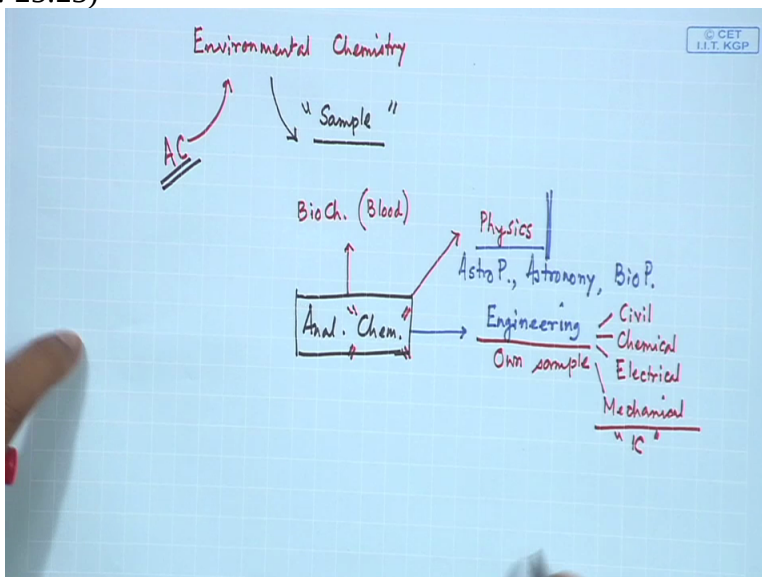 23:23)
Environmental Chemistry
© CET
I.I.T. KGP
"Sample"
AC
BioCh. (Blood)
Physics
AstroP., Astronomy, BioP.
Anal. "Chem."
Engineering
Own sample
Civil
Chemical
Electrical
Mechanical
"IC"